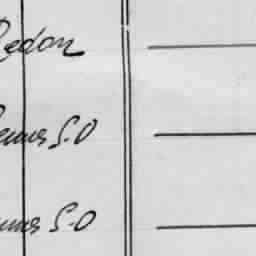 Redon
Rennes S.O
Rennes S-O